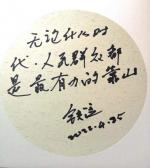 无论什么时
代，人民群众都
是最有力的靠山
2022.4.25